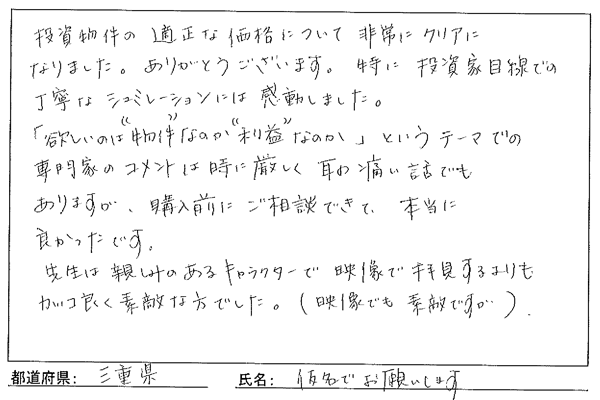 投資物件の適正な価格について非常にクリアに
なりました。ありがとうございます。特に投資家目線での
丁寧なシュミレーションには感動しました。
「欲しいのは“物件”なのか“利益”なのか」というテーマでの
専門家のコメントは時に厳しく耳の痛い話でも
ありますが、購入前にご相談できて、本当に
良かったです。
先生は親しみのあるキャラクターで映像で拝見するよりも
カッコ良く素敵な方でした。(映像でも素敵ですが).
都道府県: 三重県 氏名: 仮名でお願いします